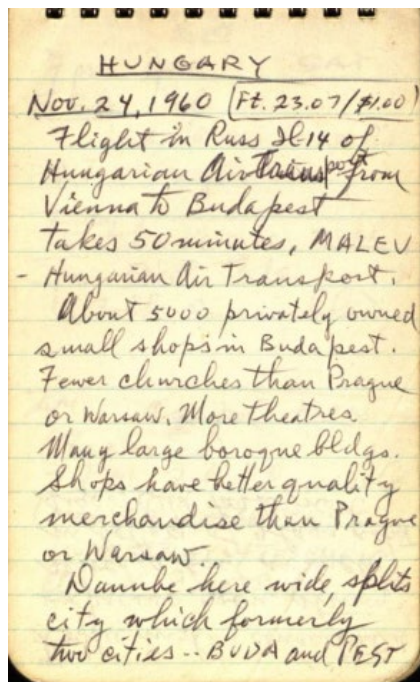 HUNGARY
Nov. 24, 1960 (Ft. 23.07/$1.00)
Flight in Russ Il-14 of
Hungarian Air Transport from
Vienna to Budapest
takes 50 minutes, MALEV
- Hungarian Air Transport.
About 5000 privately owned
small shops in Budapest.
Fewer churches than Prague
or Warsaw. More theatres.
Many large boroque bldgs.
Shops have better quality
merchandise than Prague
or Warsaw.
Danube here wide, splits
city which formerly
two cities -- BUDA and PEST